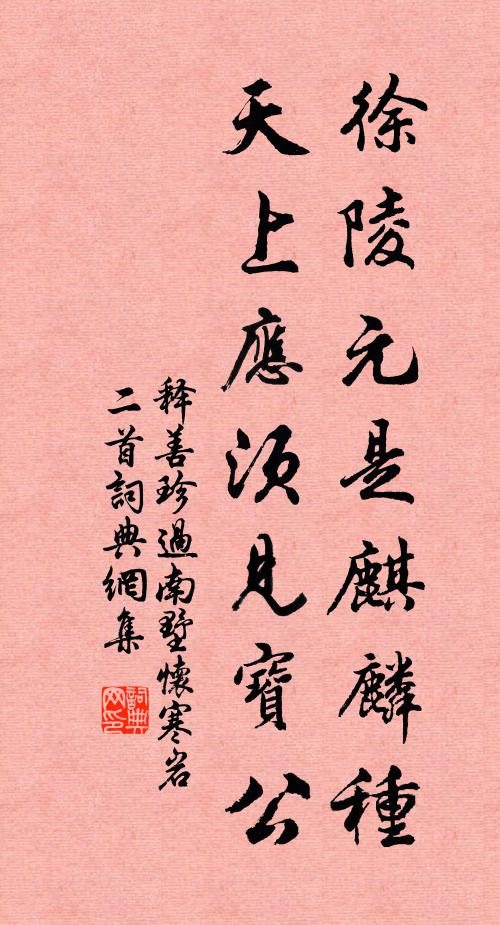 徐陵元是麒麟種
天上應須見寶公
释善珍過南墅懷寒岩
二首詞典網集
詞典網印